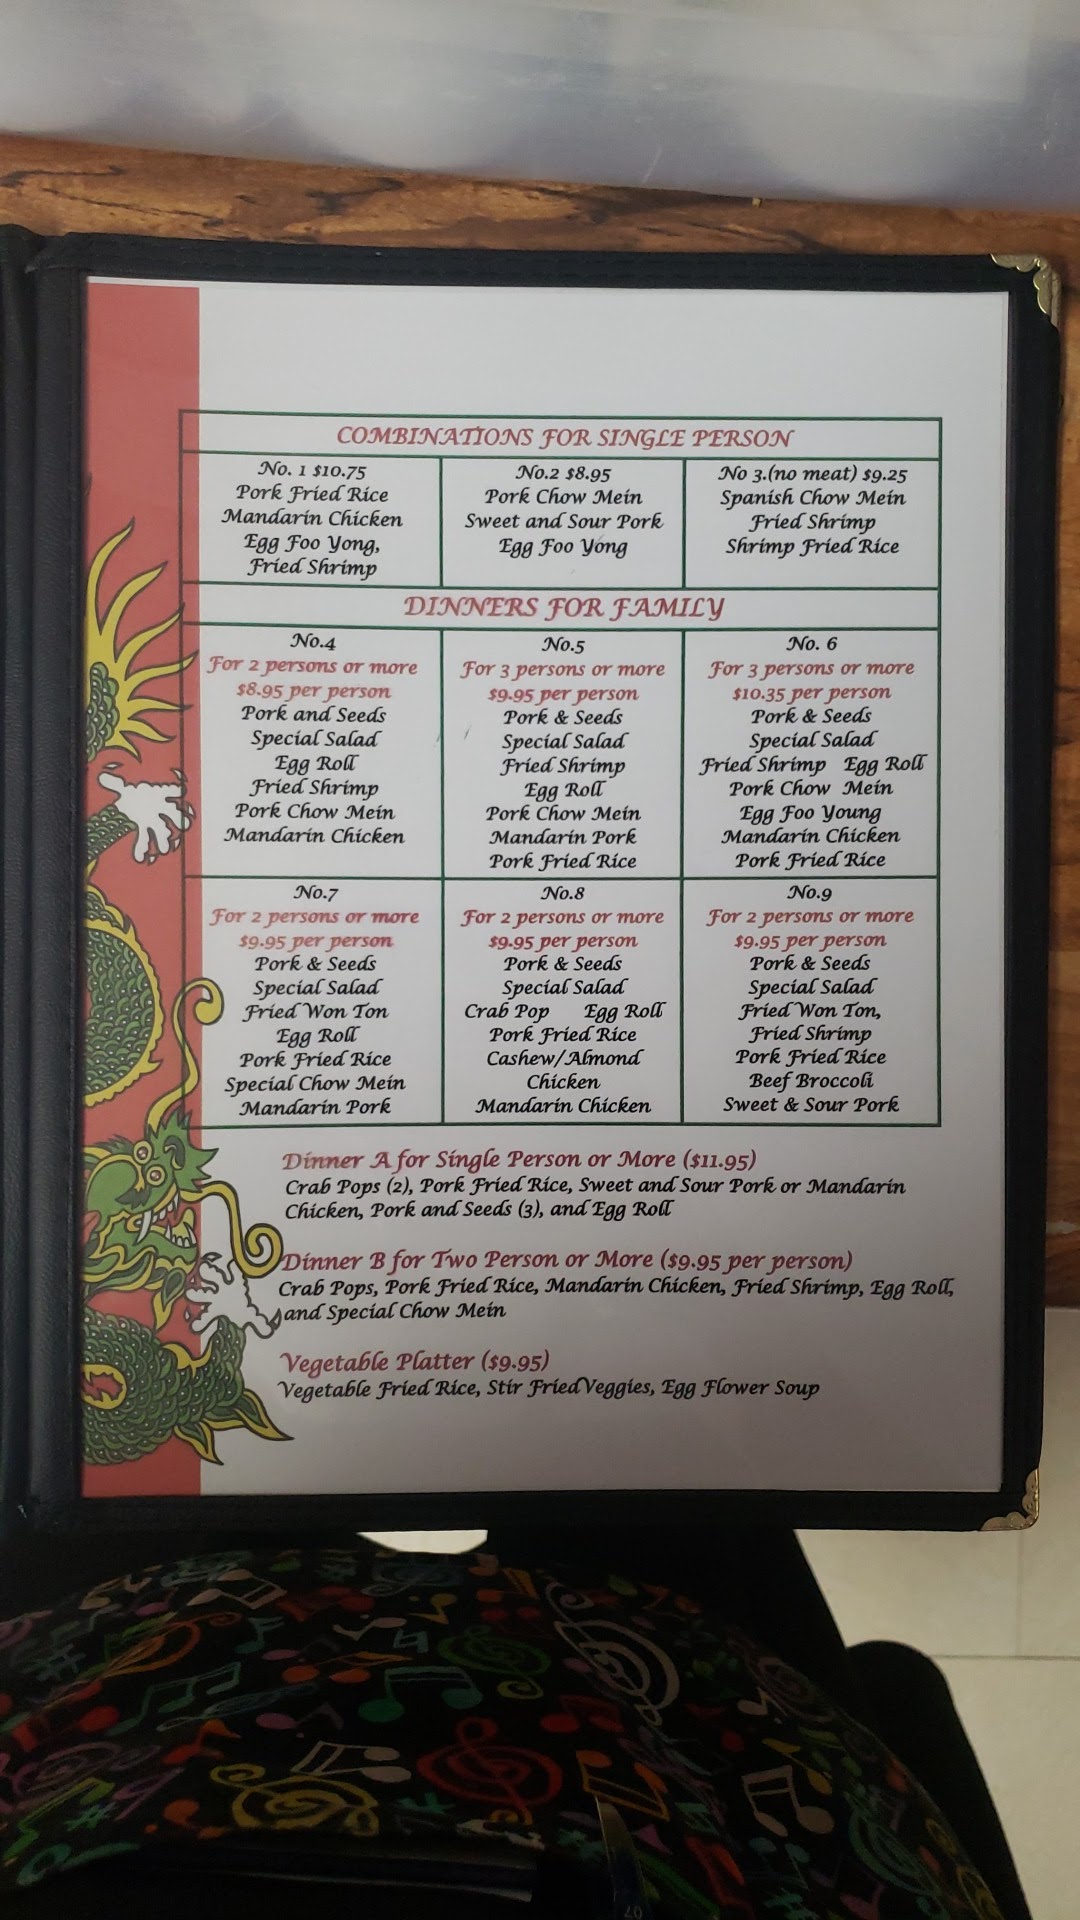 COMBINATIONS FOR SINGLE PERSON
No. 1 $10.75
Pork Fried Rice
Mandarin Chicken
Egg Foo Yong,
Fried Shrimp
No.2 $8.95
Pork Chow Mein
Sweet and Sour Pork
Egg Foo Yong
No 3.(no meat) $9.25
Spanish Chow Mein
Fried Shrimp
Shrimp Fried Rice
DINNERS FOR FAMILY
No.4
For 2 persons or more
$8.95 per person
Pork and Seeds
Special Salad
Egg Roll
Fried Shrimp
Pork Chow Mein
Mandarin Chicken
No.5
For 3 persons or more
$9.95 per person
Pork & Seeds
Special Salad
Fried Shrimp
Egg Roll
Pork Chow Mein
Mandarin Pork
Pork Fried Rice
No. 6
For 3 persons or more
$10.35 per person
Pork & Seeds
Special Salad
Fried Shrimp Egg Roll
Pork Chow Mein
Egg Foo Young
Mandarin Chicken
Pork Fried Rice
No.7
For 2 persons or more
$9.95 per person
Pork & Seeds
Special Salad
Fried Won Ton
Egg Roll
Pork Fried Rice
Special Chow Mein
Mandarin Pork
No.8
For 2 persons or more
$9.95 per person
Pork & Seeds
Special Salad
Crab Pop Egg Roll
Pork Fried Rice
Cashew/Almond
Chicken
Mandarin Chicken
No.9
For 2 persons or more
$9.95 per person
Pork & Seeds
Special Salad
Fried Won Ton,
Fried Shrimp
Pork Fried Rice
Beef Broccoli
Sweet & Sour Pork
Dinner A for Single Person or More ($11.95)
Crab Pops (2), Pork Fried Rice, Sweet and Sour Pork or Mandarin
Chicken, Pork and Seeds (3), and Egg Roll
Dinner B for Two Person or More ($9.95 per person)
Crab Pops, Pork Fried Rice, Mandarin Chicken, Fried Shrimp, Egg Roll,
and Special Chow Mein
Vegetable Platter ($9.95)
Vegetable Fried Rice, Stir Fried Veggies, Egg Flower Soup